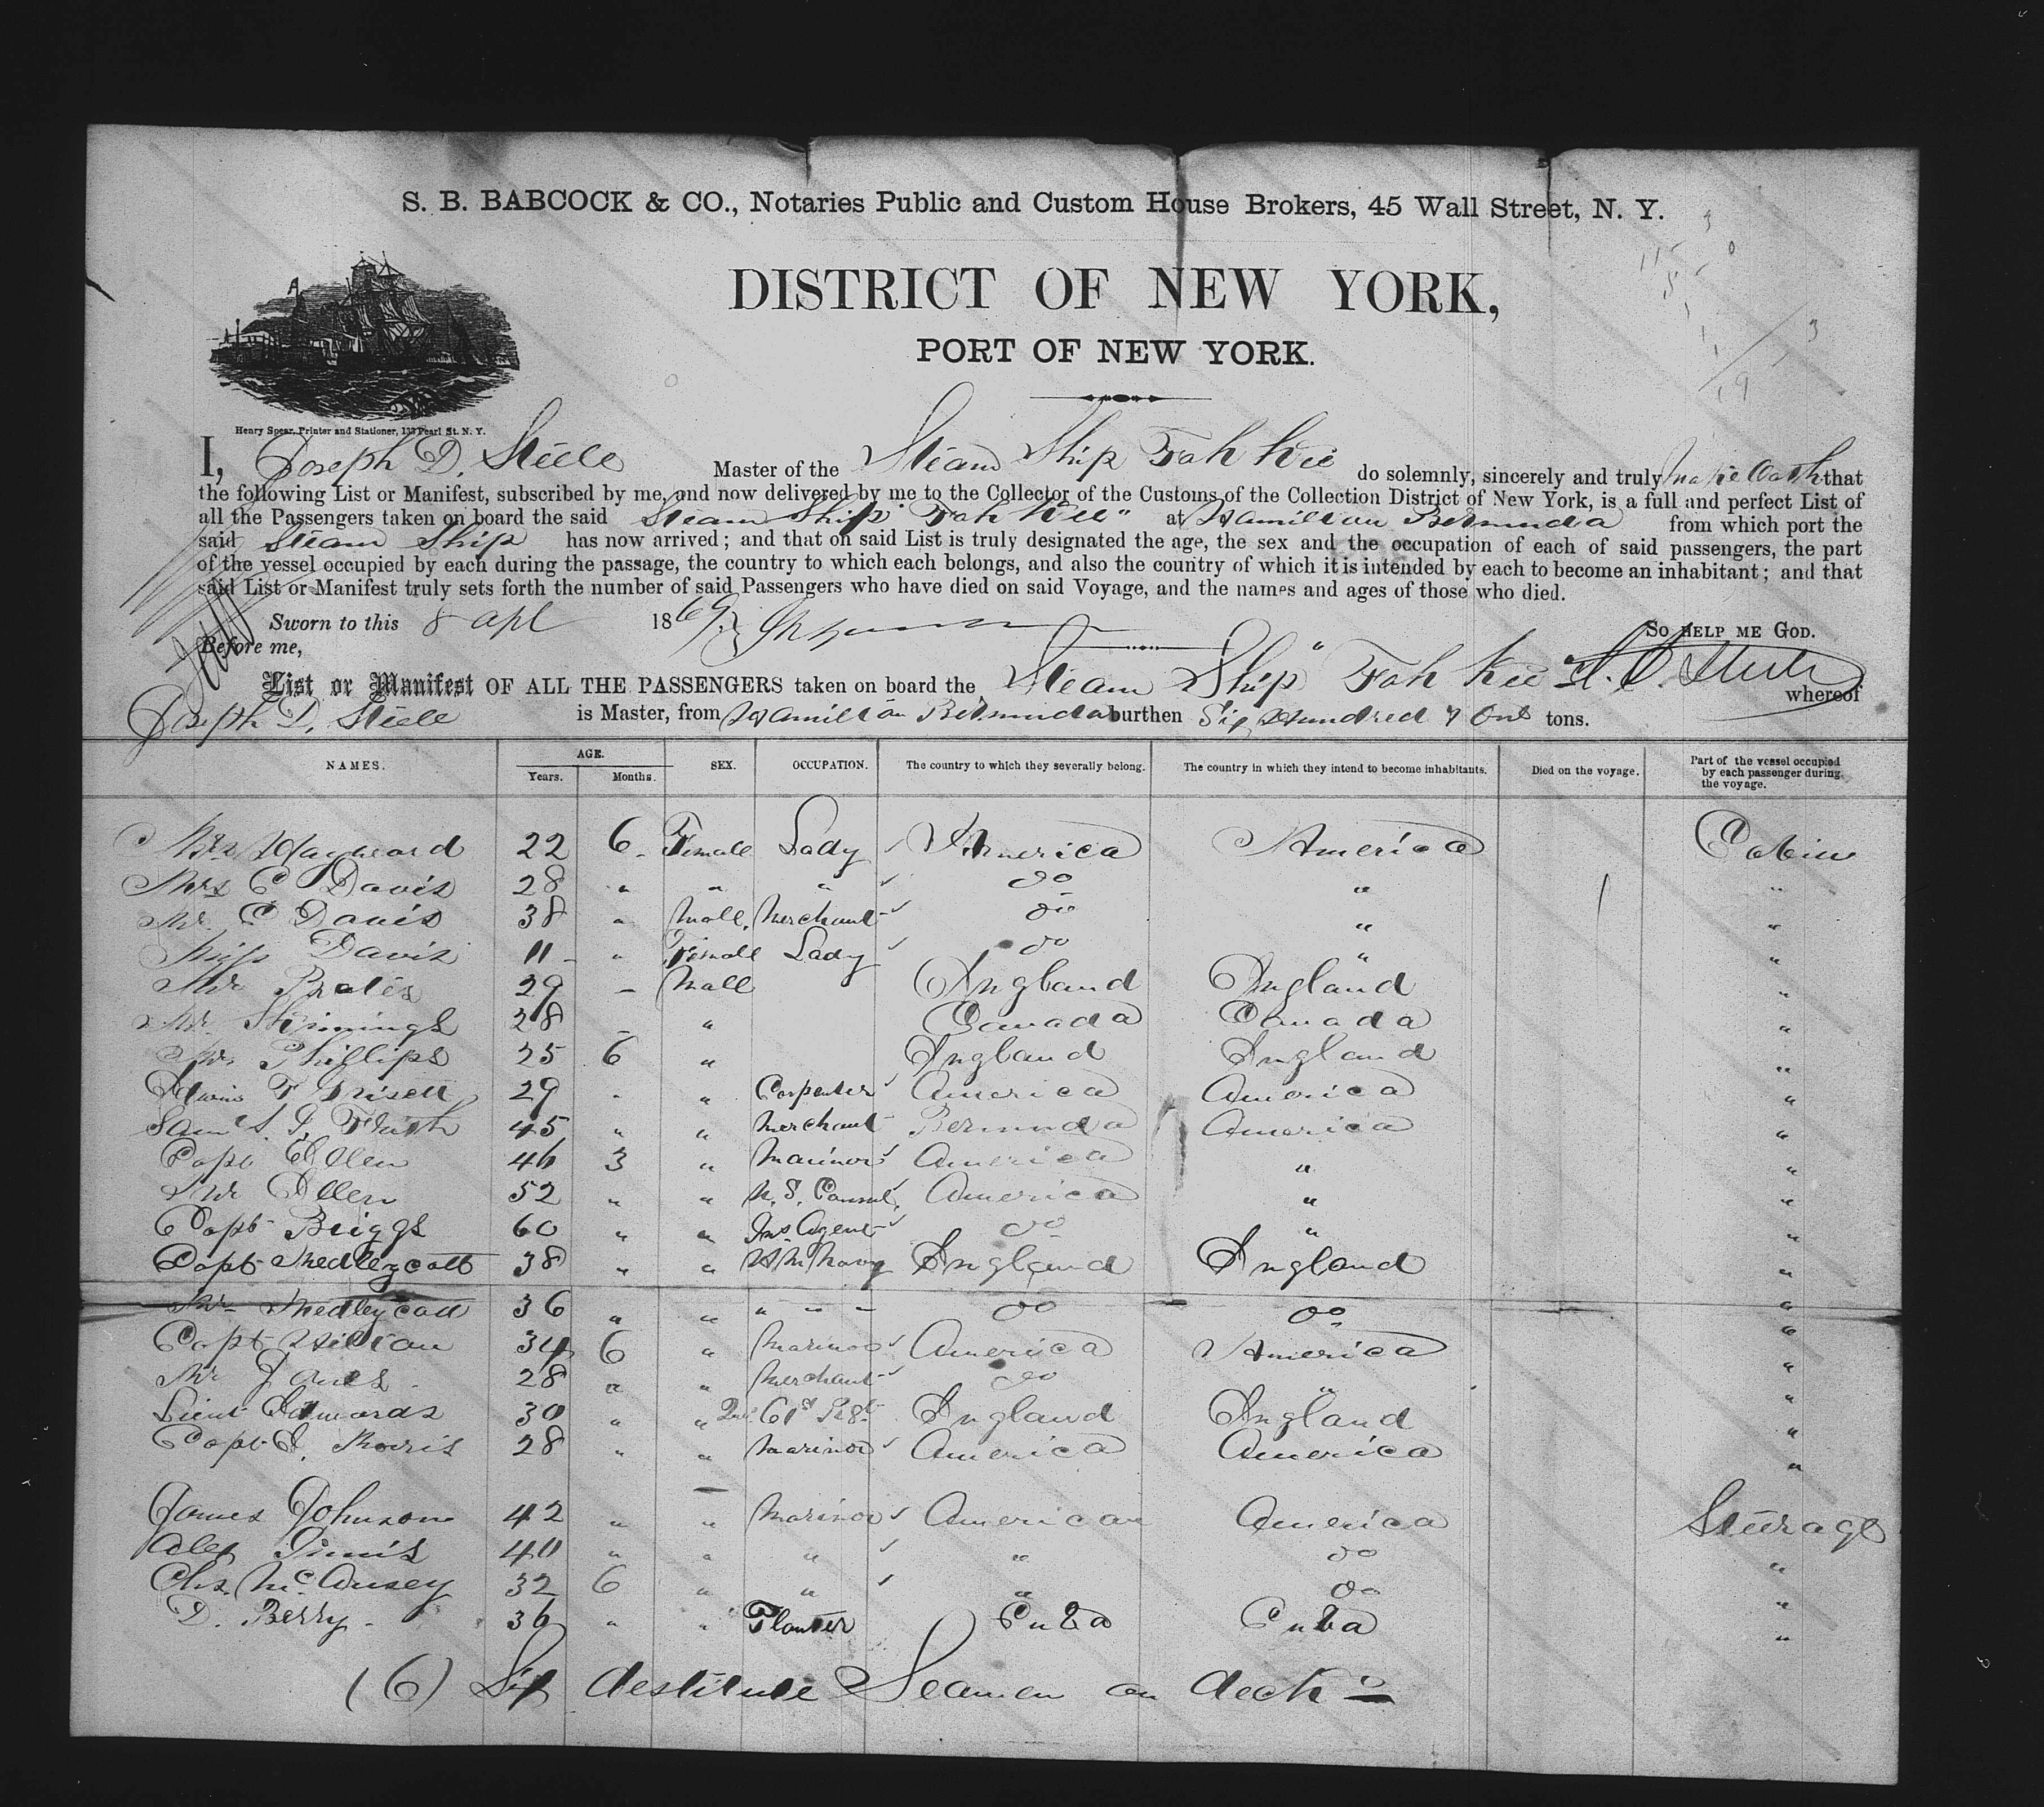 S. B. BABCOCK & CO., Notaries Public and Custom House Brokers, 45 Wall Street, N. Y.
DISTRICT OF NEW YORK,
PORT OF NEW YORK.
Henry Spear, Printer and Stationer, 133 Pearl St. N. Y.
I, Joseph D. Steele Master of the Steam Ship Fah Kee do solemnly, sincerely and truly make Oath that
the following List or Manifest, subscribed by me, and now delivered by me to the Collector of the Customs of the Collection District of New York, is a full and perfect List of
all the Passengers taken on board the said Steam Ship "Fah Kee" at Hamilton Bermuda from which port the
said Steam Ship has now arrived; and that on said List is truly designated the age, the sex and the occupation of each of said passengers, the part
of the vessel occupied by each during the passage, the country to which each belongs, and also the country of which it is intended by each to become an inhabitant; and that
said List or Manifest truly sets forth the number of said Passengers who have died on said Voyage, and the names and ages of those who died.
Sworn to this 8 apl 1869 So HELP ME GOD.
Before me,
List or Manifest OF ALL THE PASSENGERS taken on board the Steam Ship "Fah Kee J. D. Steele whereof
Joseph D. Steele is Master, from Hamilton Bermuda burthen Six Hundred & One tons.
NAMES. AGE. Years. Months. SEX. OCCUPATION. The country to which they severally belong. The country in which they intend to become inhabitants. Died on the voyage. Part of the vessel occupied by each passenger during the voyage.
Mrs Hayward 22 6 Female Lady America America Cabin
Mrs C Davis 28 " " " do " "
Mr. C Davis 38 " Male Merchant do " "
Miss Davis 11 " Female Lady do " "
Mr Bates 29 – Male England England "
Mr Hennings 28 – " Canada Canada "
Mr Phillips 25 6 " England England "
Edwin T 29 " " Carpenter America America "
Saml S. J. 45 " " Merchant Bermuda America "
Capt Allen 46 3 " Marinor America " "
Mr Allen 52 " " U. S. Consul America " "
Capt Briggs 60 " " Ins. Agent do " "
Capt Medleycott 38 " " H M Navy England England "
Mr Medleycott 36 " " " " " do do "
Capt 34 6 " Marinor America America "
Mr Jones 28 " " Merchant do " "
Lieut Edwards 30 " " 61st England England "
Capt J. Morris 28 " " Marinor America America "
James Johnson 42 " " Marinor American America Steerage
Alex 40 " " " " do "
Chs. Mc 32 6 " " " do "
D. Berry 36 " " Planter Cuba Cuba "
(6) Six destitute Seamen on deck